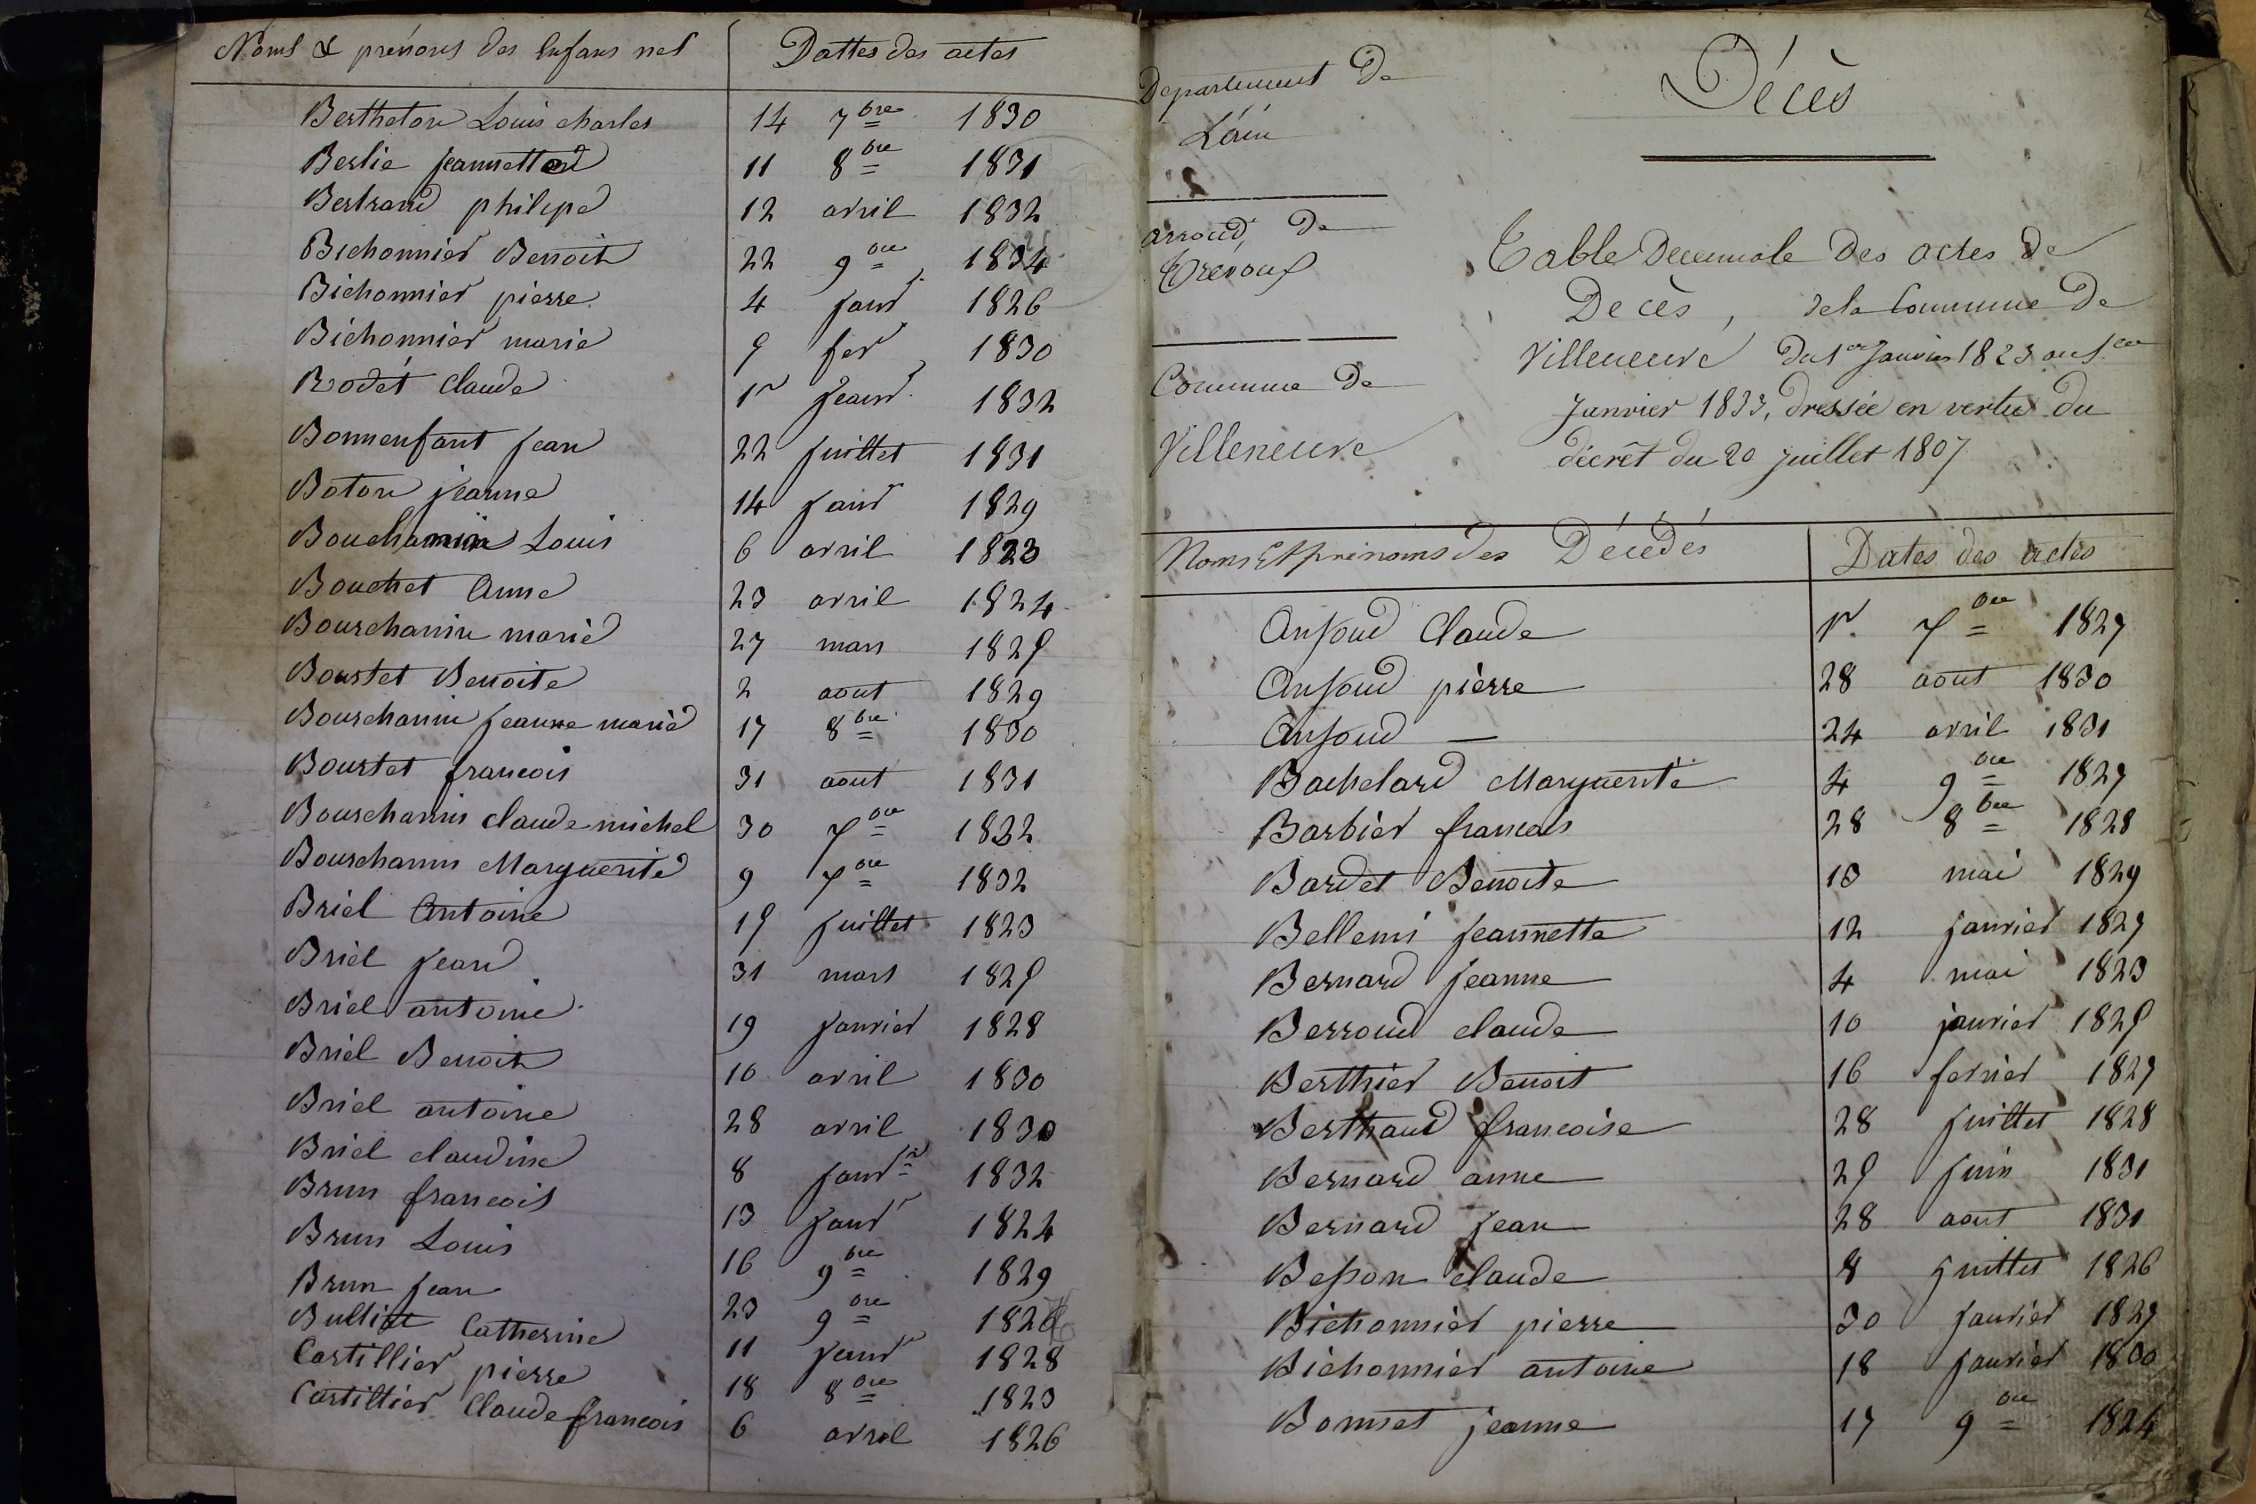 Noms & prénoms des Enfans nés Dattes des actes
Bertheton Louis charles 14 7bre 1830
Berlie jeannette 11 8bre 1831
Bertrand philipe 12 avril 1832
Bichonnier Benoit 22 9bre 1834
Bichonnier pierre 4 janr 1826
Bichonnier marie 9 fer 1830
Bodét Claude 1r Jeanr 1832
Bonnenfant jean 22 juillet 1831
Boton jeanne 14 janr 1829
Bouchamin Louis 6 avril 1823
Bouchet Anne 23 avril 1824
Bourchanin marie 27 mars 1825
Bourtet Benoite 2 aout 1829
Bourchanin jeanne marie 17 8bre 1830
Bourtet francois 31 aout 1831
Bourchanin claude michel 30 7bre 1832
Bourchanin Marguerite 9 7bre 1832
Briel Antoine 15 juillet 1823
Briel jean 31 mars 1825
Briel antoine 19 janvier 1828
Briel Benoit 10 avril 1830
Briel antoine 28 avril 1830
Briel claudine 8 janvr 1832
Brun francois 13 janr 1824
Brun Louis 16 9bre 1829
Brun jean 23 9bre 1826
Bulliat Catherine 11 janr 1828
Cartillier pierre 18 8bre 1823
Cartillier Claude francois 6 avril 1826
Département De
L'ain
arrond, De
Trevoux
Commune De
Villeneuve
Décès
Table Decennale Des actes de
Decès, dela Commune De
Villeneuve Du 1er Janvier 1823 au 1er
Janvier 1833, dressée en vertu du
décrèt du 20 juillet 1807
Noms Et prénoms des Décédés Dates des actes
Anjoud Claude 1r 7bre 1827
Anjoud pièrre 28 aout 1830
Anjoud — 24 avril 1831
Bachelard Marguerite 4 9bre 1827
Barbier francois 28 8bre 1828
Bardet Benoite 13 mai 1829
Bellemi jeannette 12 janvier 1827
Bernard jeanne 4 mai 1823
Berroud claude 10 janvier 1825
Berthier Benoit 16 fevrier 1827
Berthaud francoise 28 juillet 1828
Bernard anne 25 juin 1831
Bernard jean 28 aout 1831
Besson claude 8 juillet 1826
Bichonnier pierre 30 janvier 1827
Bichonnier antoine 18 janvier 1830
Bonnet jeanne 17 9bre 1824